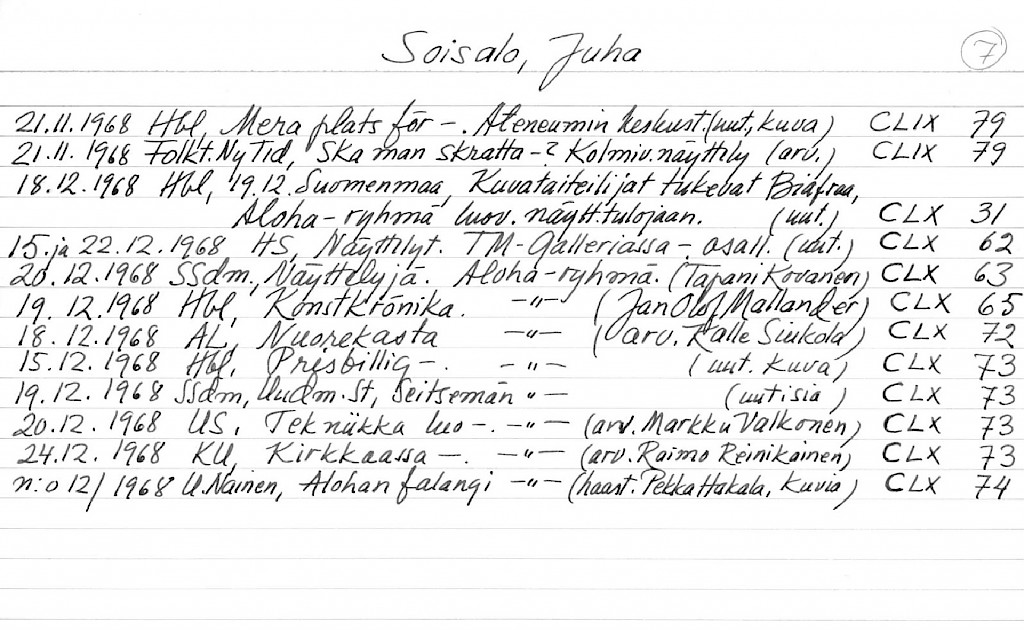 Soisalo, Juha 7
21.11.1968 Hbl, Mera plats för -. Ateneumin keskust. (uut., kuva) CLIX 79
21.11.1968 Folkt. Ny Tid, Ska man skratta-? Kolmiv. näyttely (arv.) CLIX 79
18.12.1968 Hbl, 19.12. Suomenmaa, Kuvataiteilijat tukevat Biafraa,
Aloha-ryhmä luov. näytt.tulojaan. (uut.) CLX 31
15. ja 22.12.1968 HS, Näyttelyt. TM-Galleriassa - osall. (uut.) CLX 62
20.12.1968 SSdm., Näyttelyjä. Aloha-ryhmä. (Tapani Kovanen) CLX 63
19.12.1968 Hbl, Konstkrönika. -"- (Jan Olof Mallander) CLX 65
18.12.1968 AL, Nuorekasta -"- (arv. Kalle Siukola) CLX 72
15.12.1968 Hbl, Prisbillig -. -"- (uut. kuva) CLX 73
19.12.1968 SSdm, Uudm. St, Seitsemän "- (uutisia) CLX 73
20.12.1968 US, Tekniikka luo -. -"- (arv. Markku Valkonen) CLX 73
24.12.1968 KU, Kirkkaassa -. -"- (arv. Raimo Reinikainen) CLX 73
n:o 12/1968 U. Nainen, Alohan falangi -"- (haast. Pekka Hakala, kuvia) CLX 74